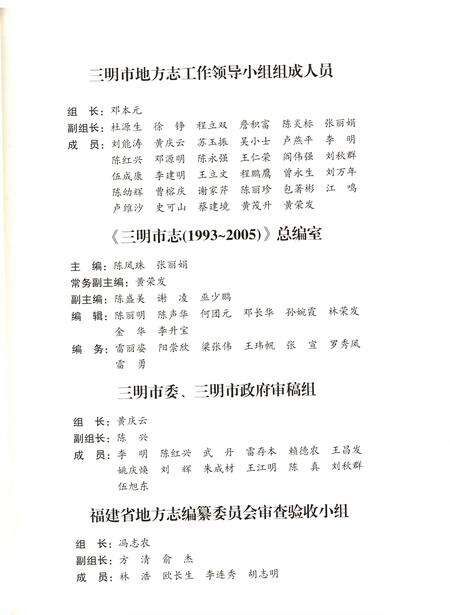 三明市地方志工作领导小组组成人员
组 长：邓本元
副组长：杜源生 徐 铮 程立双 詹积富 陈炎标 张丽娟
成 员：刘能涛 黄庆云 苏玉振 吴小士 卢燕平 李 明
陈红兴 邓源明 陈永强 王仁荣 阎伟强 刘秋群
伍成康 李建明 王立文 程鹏鹰 曾永生 刘万年
陈幼辉 曹榕庆 谢家芹 陈丽珍 包著彬 江 鸣
卢维沙 史可山 蔡建境 黄茂升 黄荣发
《三明市志(1993~2005)》总编室
主 编：陈凤珠 张丽娟
常务副主编：黄荣发
副主编：陈盛美 谢 凌 巫少鹏
编 辑：陈丽明 陈声华 何团元 邓长华 孙婉霞 林荣发
金 华 李升宝
编 务：雷丽姿 阳崇欣 梁张伟 王玮帆 张 宣 罗秀凤
雷 勇
三明市委、三明市政府审稿组
组 长：黄庆云
副组长：陈 兴
成 员：李 明 陈红兴 武 丹 雷存本 赖德农 王昌发
姚庆焕 刘 辉 朱成材 王江明 陈 真 刘秋群
伍旭东
福建省地方志编纂委员会审查验收小组
组 长：冯志农
副组长：方 清 俞 杰
成 员：林 浩 欧长生 李连秀 胡志明